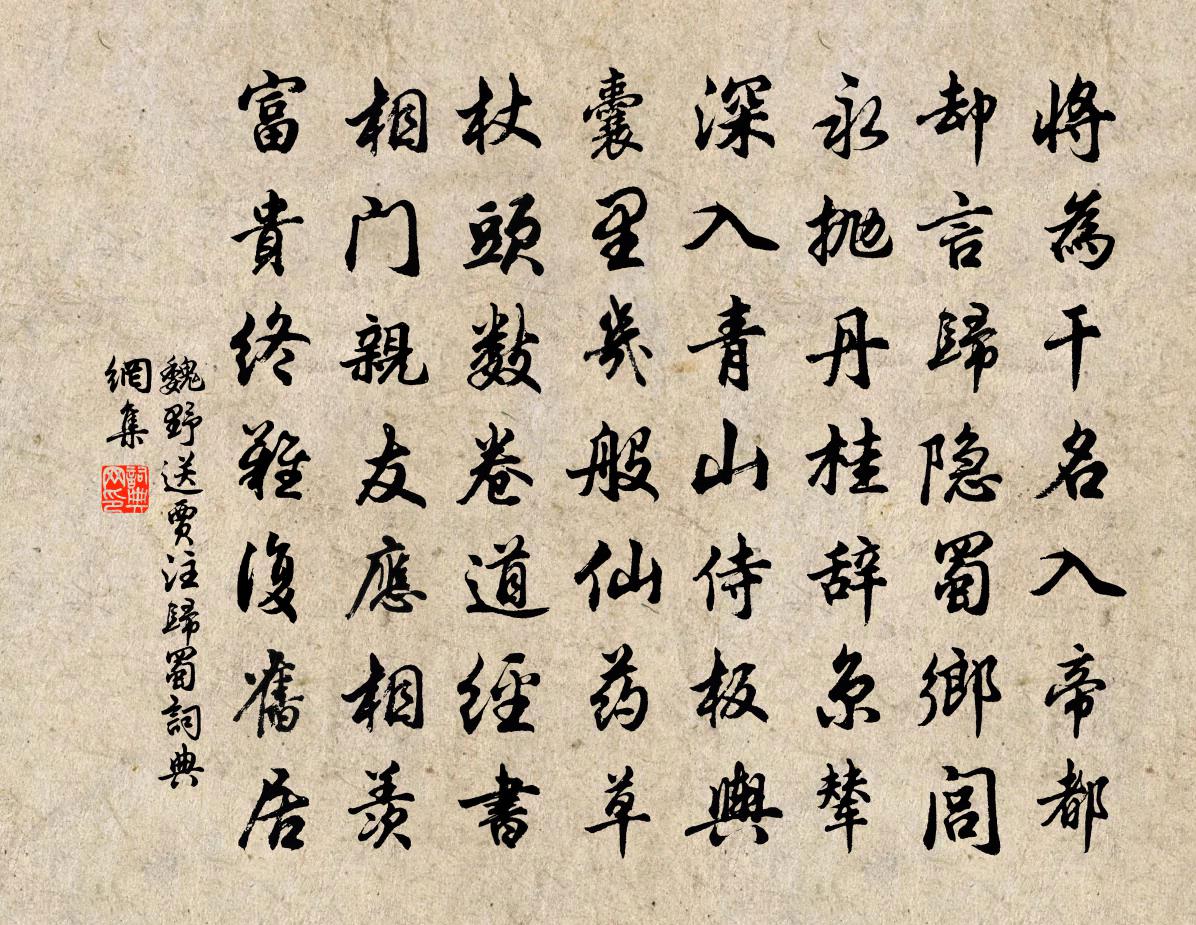 將為干名入帝都
却言歸隐蜀鄉閭
永抛丹桂辞京輦
深入青山侍板輿
囊里幾般仙药草
杖頭数卷道經書
相門親友應相羡
富貴終難復舊居
魏野送贾注歸蜀詞典
網集
詞典网印